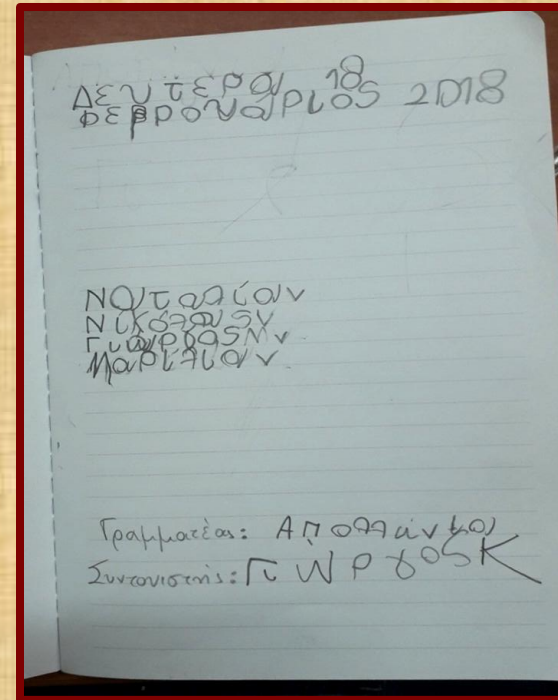 Δευτέρα 18
Φεβρουάριος 2018
Ναταλία ν
Νικόλας ν
Γιώργος Μ ν
Μαριλία ν
Γραμματέας: Απολλώνια
Συντονιστής: Γιώργος Κ